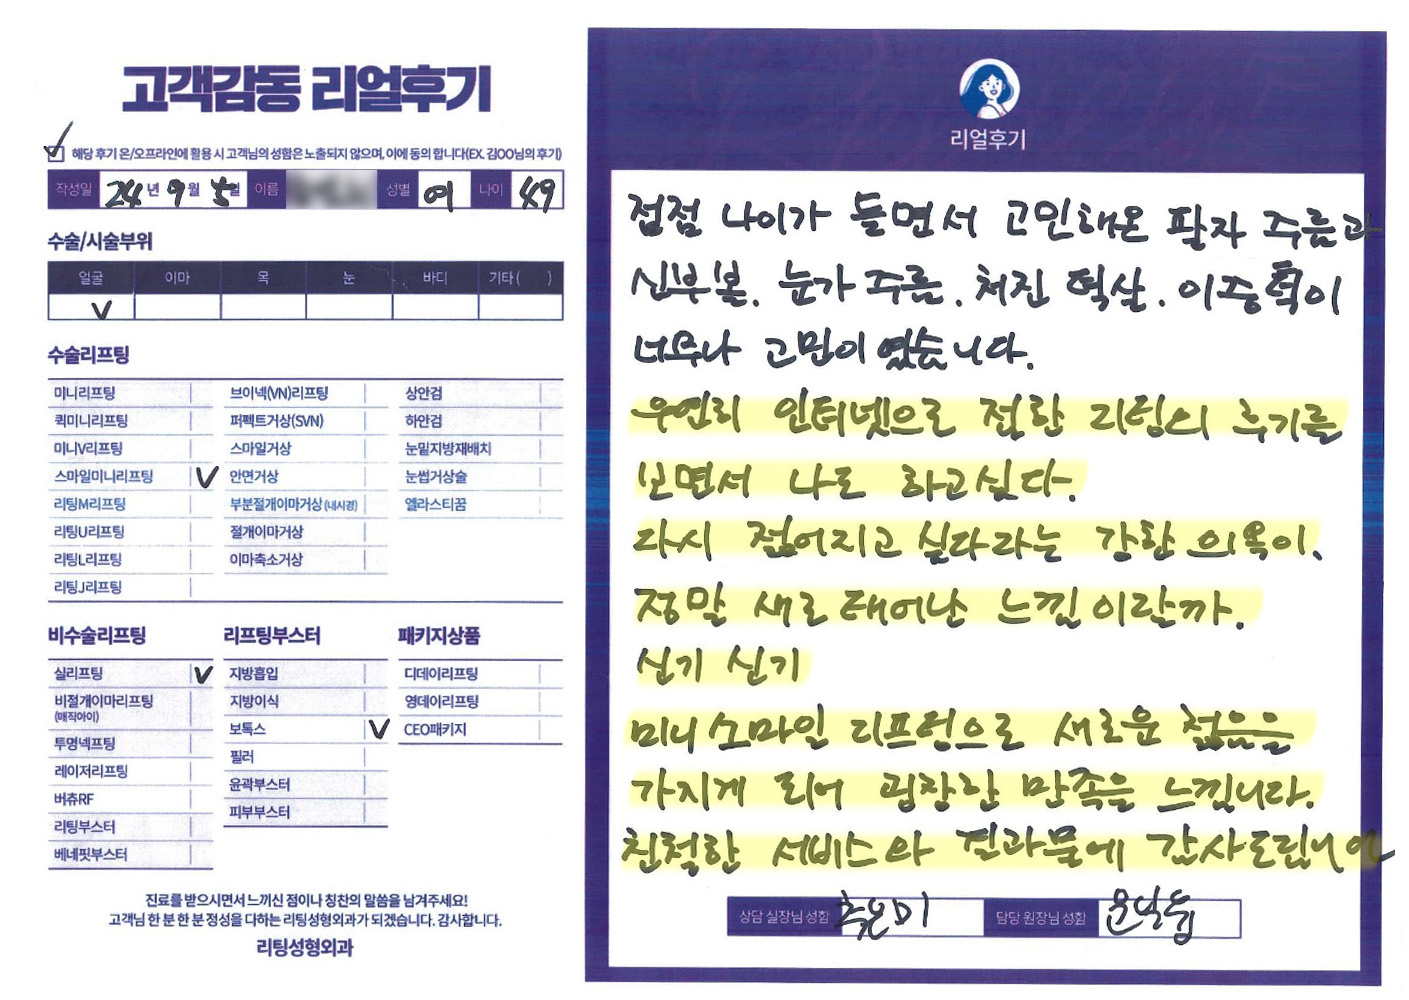 고객감동 리얼후기
해당 후기 온/오프라인에 활용 시 고객님의 성함은 노출되지 않으며, 이에 동의 합니다(EX. 김OO님의 후기)
작성일 24년 9월 5일 이름 성별 여 나이 49
수술/시술부위
얼굴 이마 목 눈 바디 기타( )
수술리프팅
미니리프팅 브이넥(VN)리프팅 상안검
퀵미니리프팅 퍼펙트거상(SVN) 하안검
미니V리프팅 스마일거상 눈밑지방재배치
스마일미니리프팅 안면거상 눈썹거상술
리팅M리프팅 부분절개이마거상 (내시경) 엘라스티꿈
리팅U리프팅 절개이마거상
리팅L리프팅 이마축소거상
리팅J리프팅
비수술리프팅
실리프팅
비절개이마리프팅
(매직아이)
투명넥프팅
레이저리프팅
버츄RF
리팅부스터
베네핏부스터
리프팅부스터
지방흡입
지방이식
보톡스
필러
윤곽부스터
피부부스터
패키지상품
디데이리프팅
영데이리프팅
CEO패키지
진료를 받으시면서 느끼신 점이나 칭찬의 말씀을 남겨주세요!
고객님 한 분 한 분 정성을 다하는 리팅성형외과가 되겠습니다. 감사합니다.
리팅성형외과
리얼후기
점점 나이가 들면서 고민해온 팔자 주름과
심부볼. 눈가 주름. 처진 턱살. 이중턱이
너무나 고민이 였습니다.
우연히 인터넷으로 접한 리팅의 후기를
보면서 나도 하고싶다.
다시 젊어지고 싶다라는 강한 의욕이.
정말 새로 태어난 느낌이랄까.
신기 신기
미니 스마일 리프팅으로 새로운 젊음을
가지게 되어 굉장한 만족을 느낍니다.
친절한 서비스와 결과물에 감사드립니다
상담 실장님 성함 담당 원장님 성함